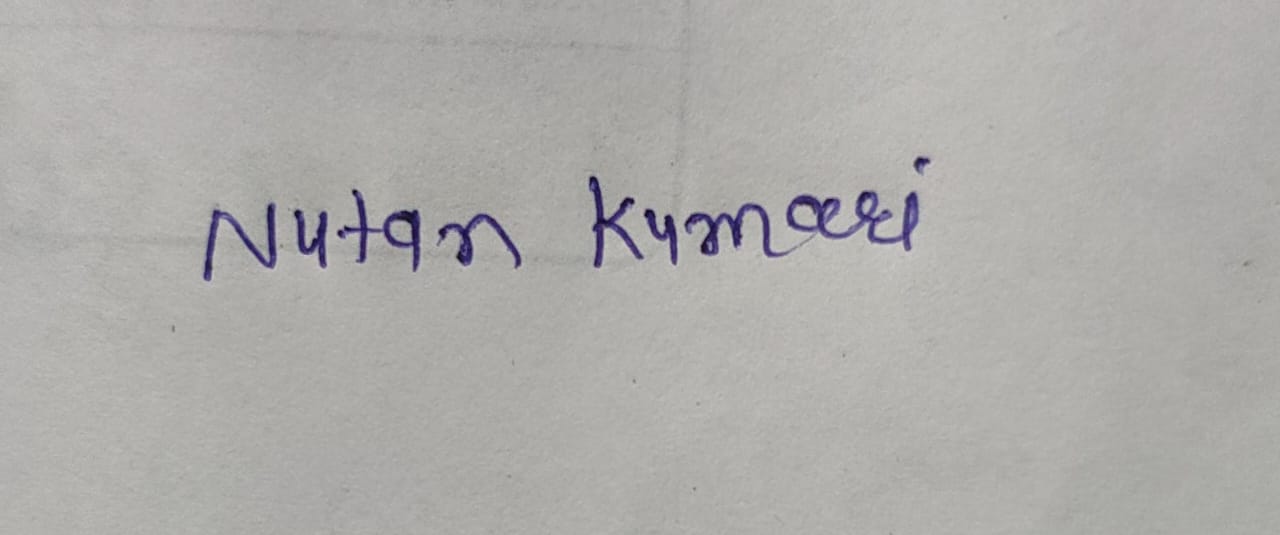 Nutan Kumari